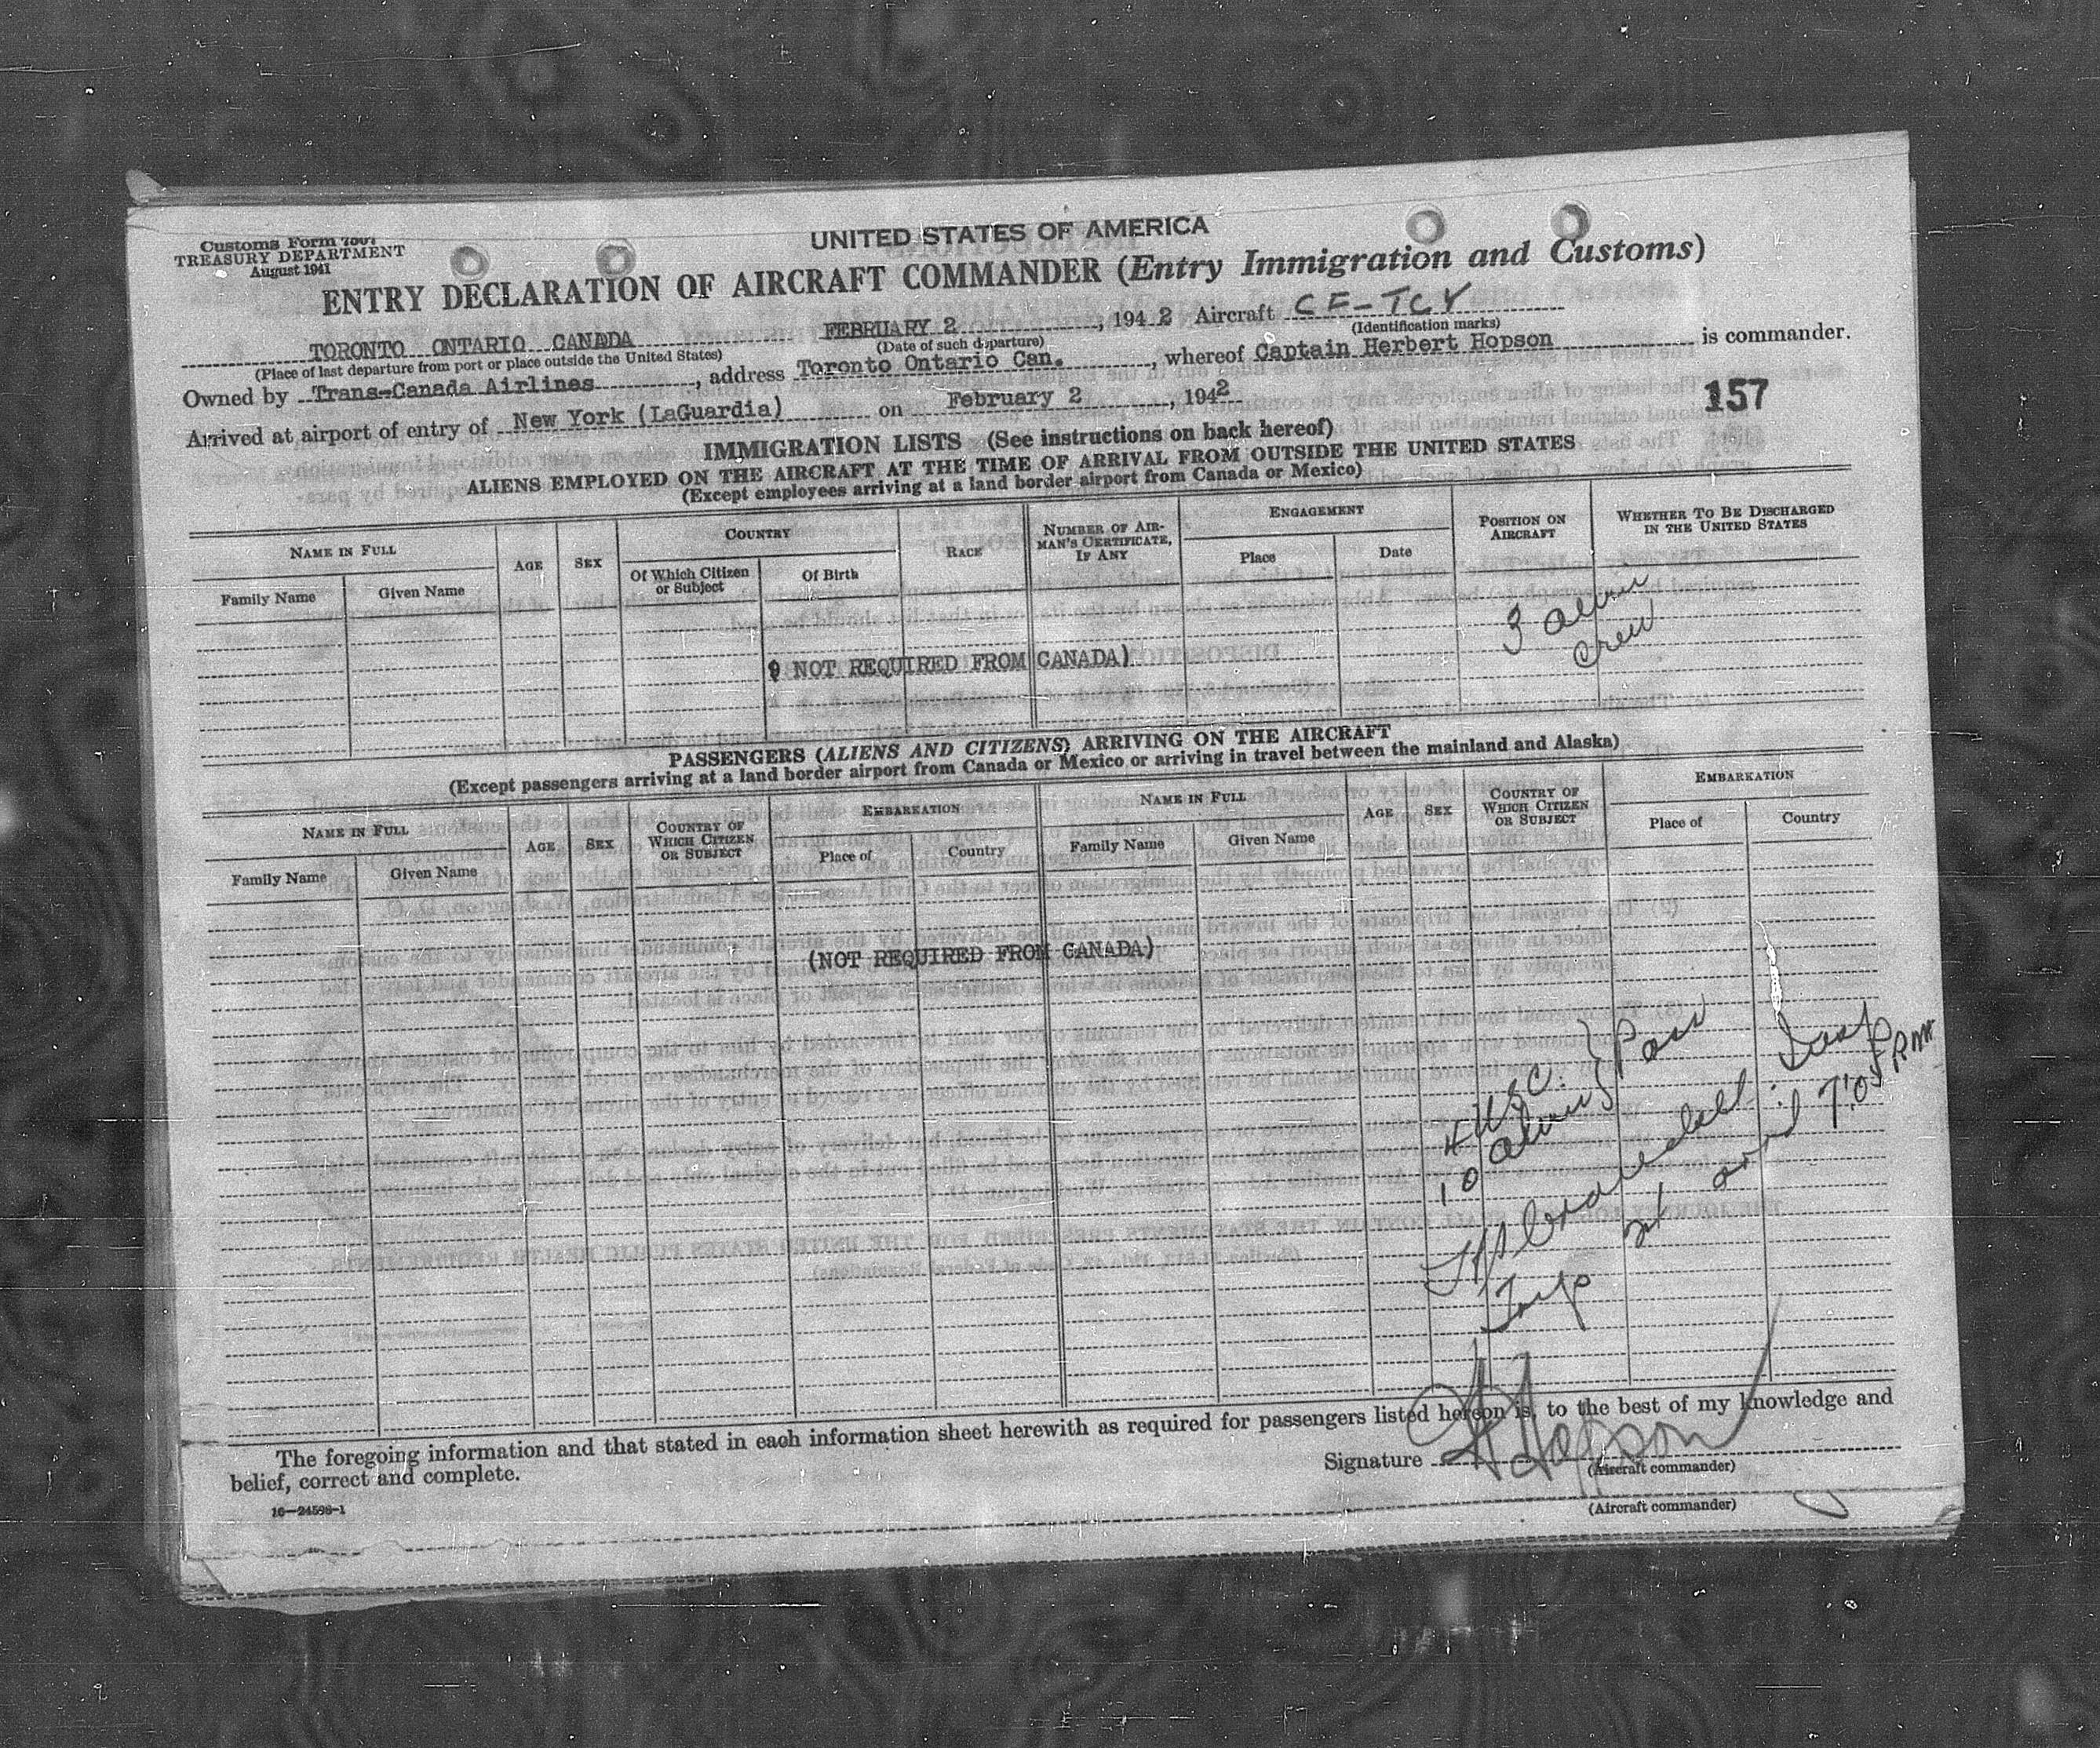 Customs Form 7507
TREASURY DEPARTMENT
August 1941
UNITED STATES OF AMERICA
ENTRY DECLARATION OF AIRCRAFT COMMANDER (Entry Immigration and Customs)
TORONTO ONTARIO CANADA FEBRUARY 2, 1942 Aircraft CF-TCY
(Place of last departure from port or place outside the United States) (Date of such departure) (Identification marks)
Owned by Trans-Canada Airlines, address Toronto Ontario Can., whereof Captain Herbert Hopson is commander.
Arrived at airport of entry of New York (LaGuardia) on February 2, 1942
157
IMMIGRATION LISTS (See instructions on back hereof)
ALIENS EMPLOYED ON THE AIRCRAFT AT THE TIME OF ARRIVAL FROM OUTSIDE THE UNITED STATES
(Except employees arriving at a land border airport from Canada or Mexico)
NAME IN FULL
Family Name Given Name
AGE
SEX
COUNTRY
Of Which Citizen or Subject
Of Birth
RACE
NUMBER OF AIRMAN'S CERTIFICATE, IF ANY
ENGAGEMENT
Place Date
POSITION ON AIRCRAFT
WHETHER TO BE DISCHARGED IN THE UNITED STATES
3 alien
crew
NOT REQUIRED FROM CANADA)
PASSENGERS (ALIENS AND CITIZENS) ARRIVING ON THE AIRCRAFT
(Except passengers arriving at a land border airport from Canada or Mexico or arriving in travel between the mainland and Alaska)
NAME IN FULL
Family Name Given Name
AGE
SEX
COUNTRY OF WHICH CITIZEN OR SUBJECT
EMBARKATION
Place of Country
NAME IN FULL
Family Name Given Name
AGE
SEX
COUNTRY OF WHICH CITIZEN OR SUBJECT
EMBARKATION
Place of Country
(NOT REQUIRED FROM CANADA)
4 USC.
10 Aliens } Pass
7:05 PM
Insp
The foregoing information and that stated in each information sheet herewith as required for passengers listed hereon is, to the best of my knowledge and
belief, correct and complete.
Signature H Hopson
(Aircraft commander)
16—24598-1
(Aircraft commander)